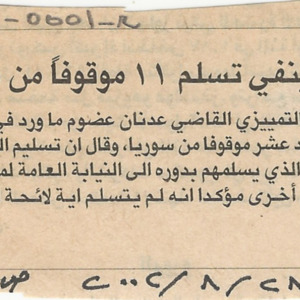 ينفي تسلم ١١ موقوفاً من
التمييزي القاضي عدنان عضوم ما ورد في
د عشر موقوفا من سوريا، وقال ان تسليم ال
الذي يسلمهم بدوره الى النيابة العامة لم
أخرى مؤكدا انه لم يتسلم اية لائحة
٢٠٠٢/٨/٢٨